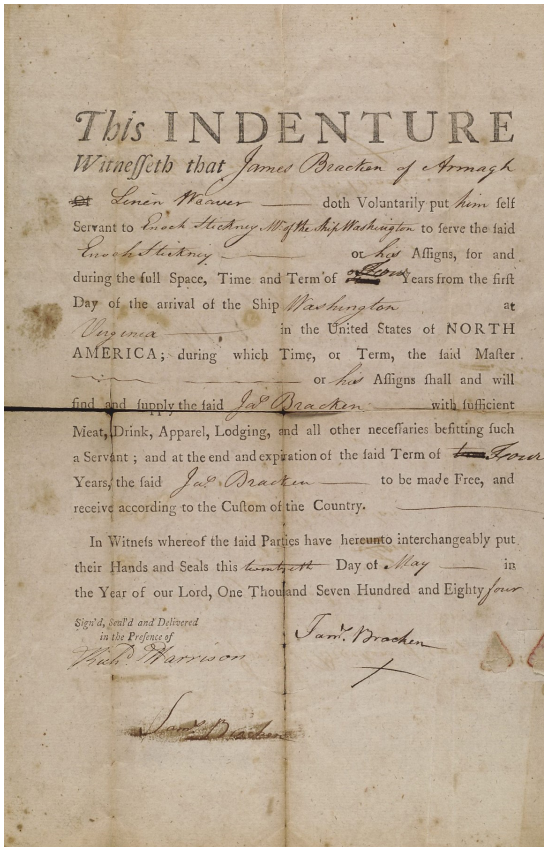 This INDENTURE
Witnesseth that James Bracken of Armagh
Linen Weaver doth Voluntarily put him self
Servant to Enoch Stickney Mr. of the Ship Washington to serve the said
Enoch Stickney or his Assigns, for and
during the full Space, Time and Term of Four Years from the first
Day of the arrival of the Ship Washington at
Virginea in the United States of NORTH
AMERICA; during which Time, or Term, the said Master
or his Assigns shall and will
find and supply the said Jas. Bracken with sufficient
Meat, Drink, Apparel, Lodging, and all other necessaries befitting such
a Servant; and at the end and expiration of the said Term of Four
Years, the said Jas. Bracken to be made Free, and
receive according to the Custom of the Country.
In Witness whereof the said Parties have hereunto interchangeably put
their Hands and Seals this twentieth Day of May in
the Year of our Lord, One Thousand Seven Hundred and Eighty four
Sign'd, Seal'd and Delivered
in the Presence of
Richd. Harrison
Jams. Bracken
Jams. Bracken